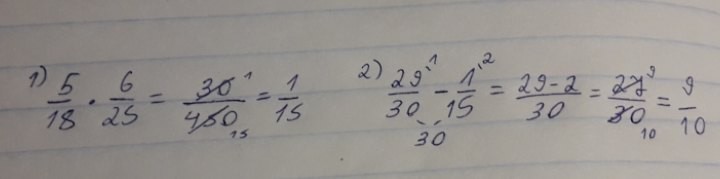 1) 5/18 · 6/25 = 30¹/450₁₅ = 1/15
2) 29¹/30 - 1²/15 = 29-2/30 = 27⁹/30₁₀ = 9/10
30